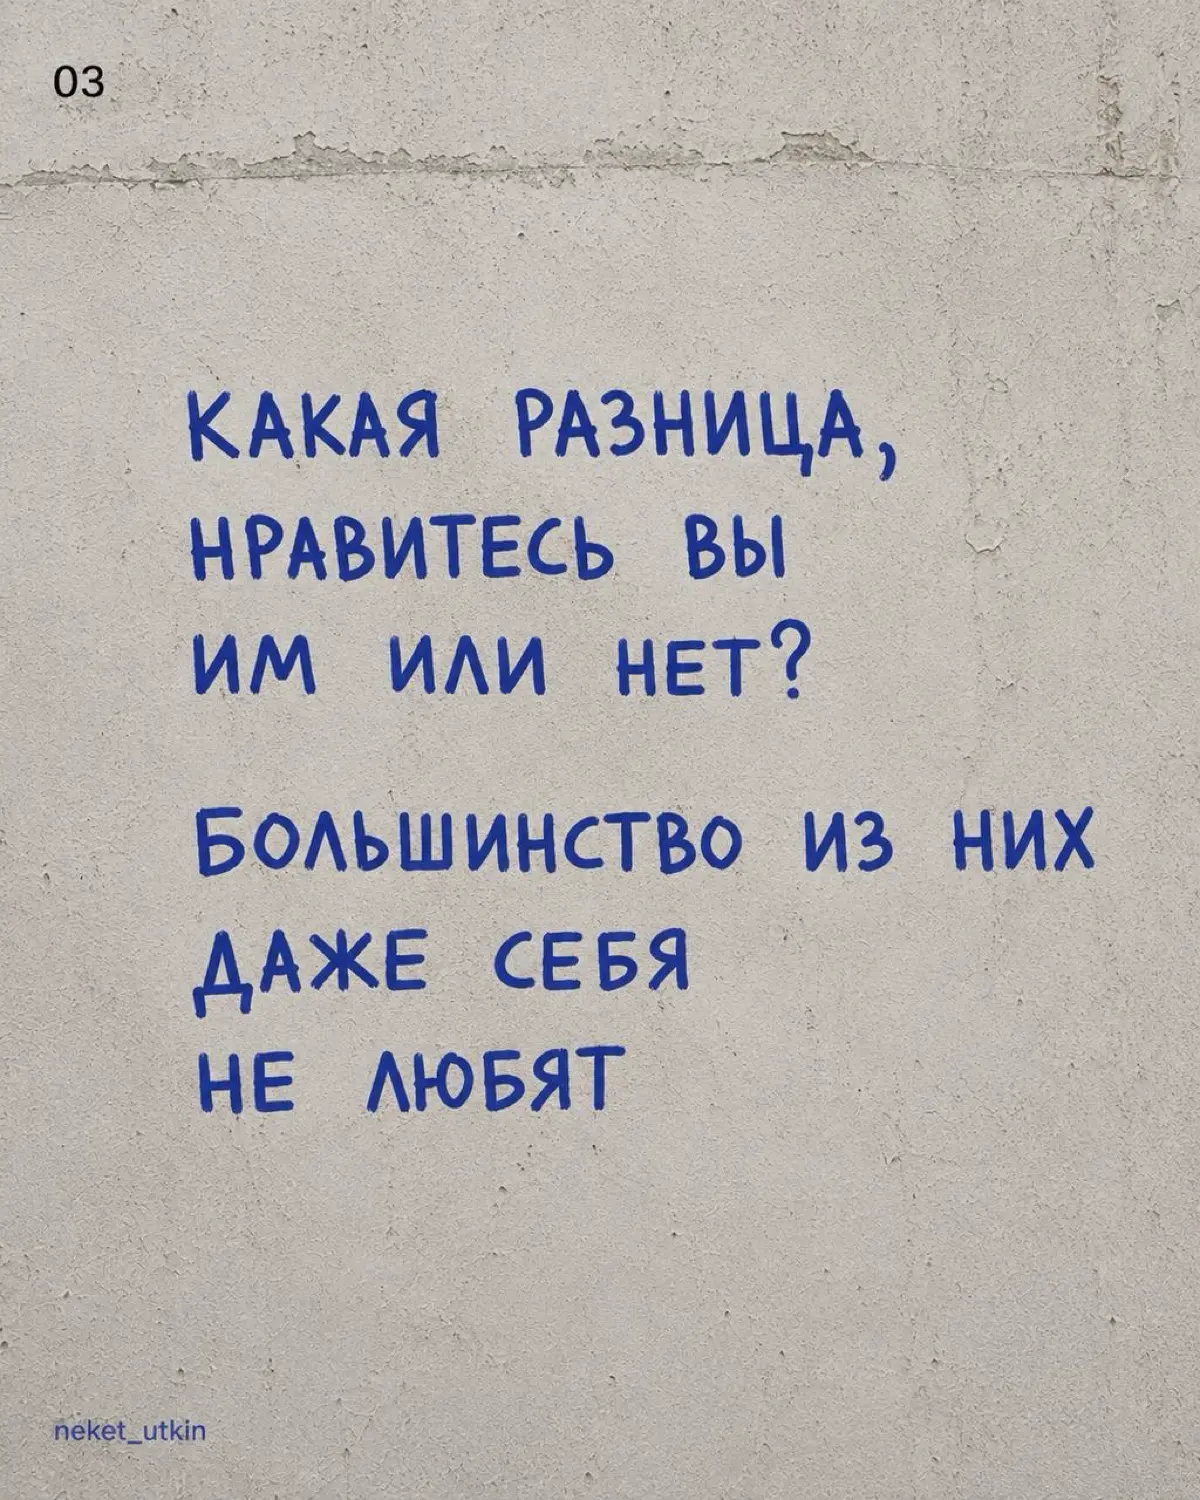 03
КАКАЯ РАЗНИЦА,
НРАВИТЕСЬ ВЫ
ИМ ИЛИ НЕТ?
БОЛЬШИНСТВО ИЗ НИХ
ДАЖЕ СЕБЯ
НЕ ЛЮБЯТ
neket_utkin